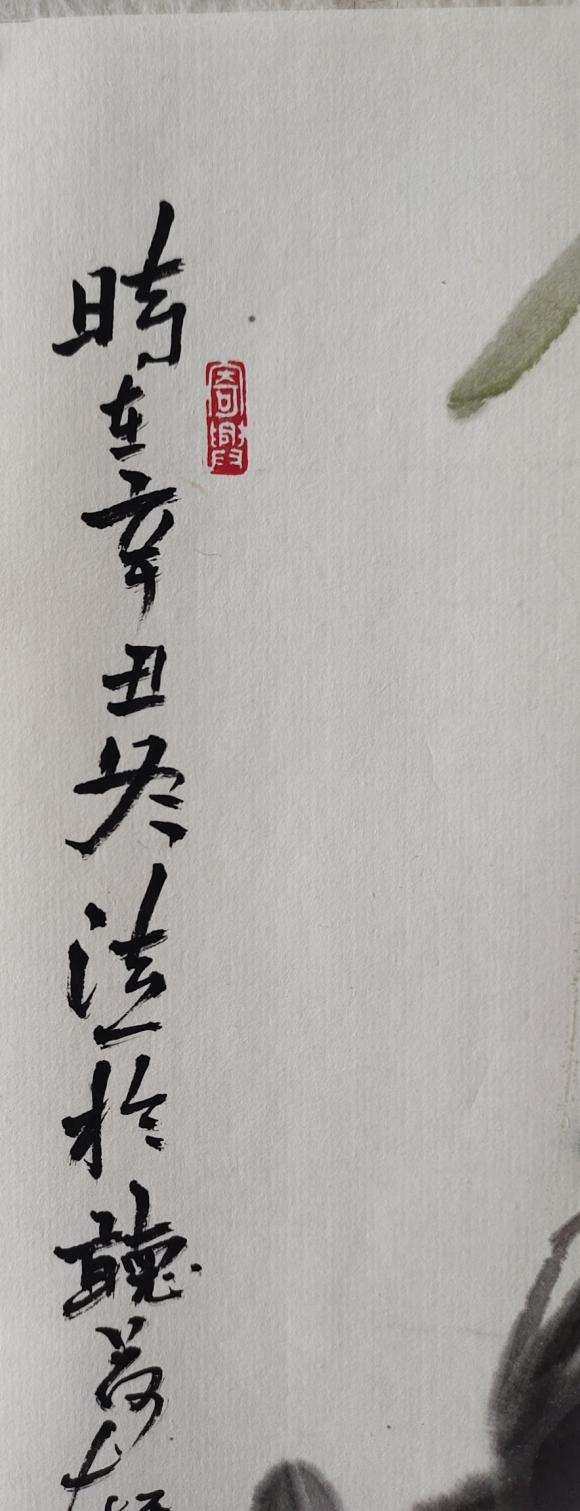 時在辛丑冬法一於聽荷